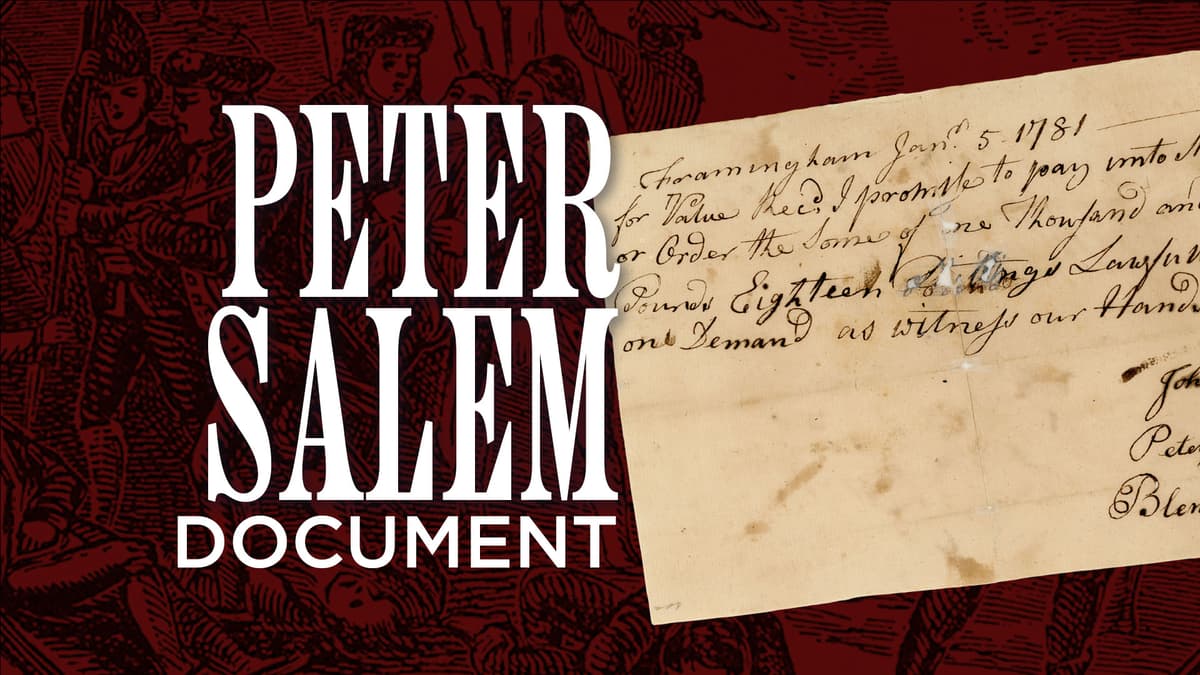 PETER
SALEM
DOCUMENT
Framingham Janr. 5 1781
for Value Recd. I promise to pay unto
or Order the Some of one Thousand and
Pounds Eighteen Lawfu
one Demand as witness our Hand
Joh
Pete
Blen